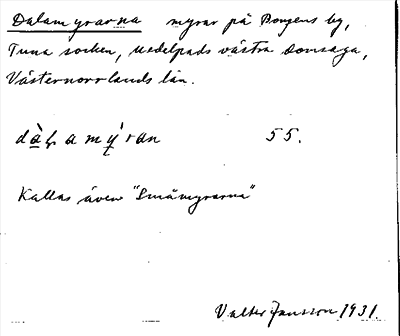 Dalamyrarna myrar på Borgens by,
Tuna socken, Medelpads västra domsaga,
Västernorrlands län.
dàɫamy̆́ran 55.
Kallas även "Småmyrarna"
Valter Jansson 1931.